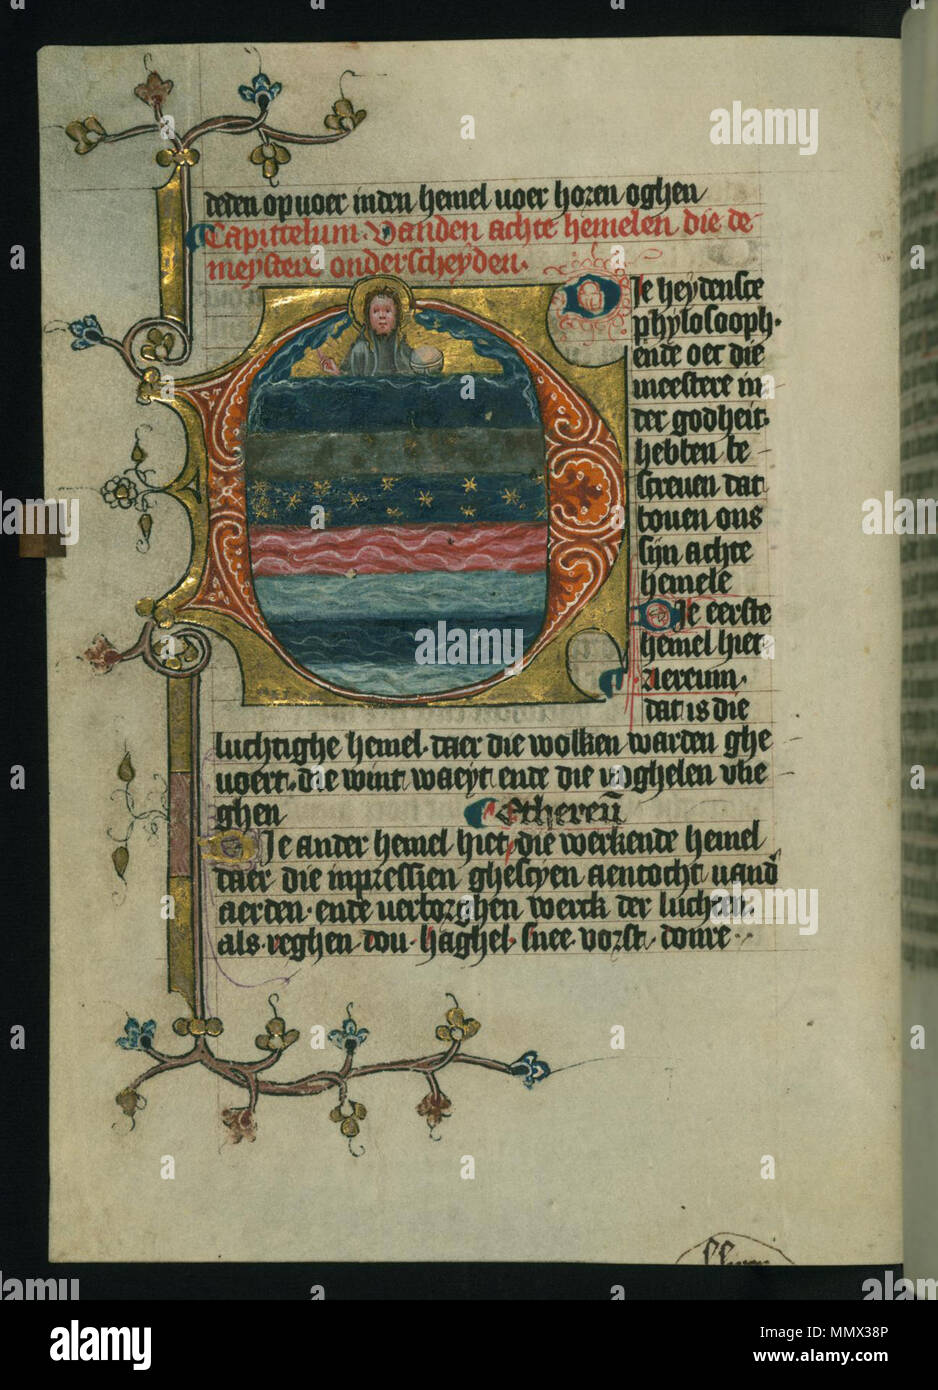 deden op voer in den hemel voer horen oghen
Capittelum. Vanden achte hemelen die de
meystere onderscheyden.
Die heydensce
phylosooph.
ende oec die
meestere in
der godheit.
hebben be
screuen dat
bouen ons
sijn achte
hemele
Die eerste
hemel hiet
Aereum.
dat is die
luchtighe hemel. daer die wolken warden ghe
uoert. die wint waeyt ende die voghelen vlie
ghen
Ethereū
Die ander hemel hiet die werkende hemel
daer die inpressien ghescyen aen tocht vand
aerden. ende verborghen werck der luchten.
als reghen. dou. haghel. snee. vorst. donre
alamy
alamy
alamy
alamy
alamy
alamy
Image ID: MMX38P
www.alamy.com